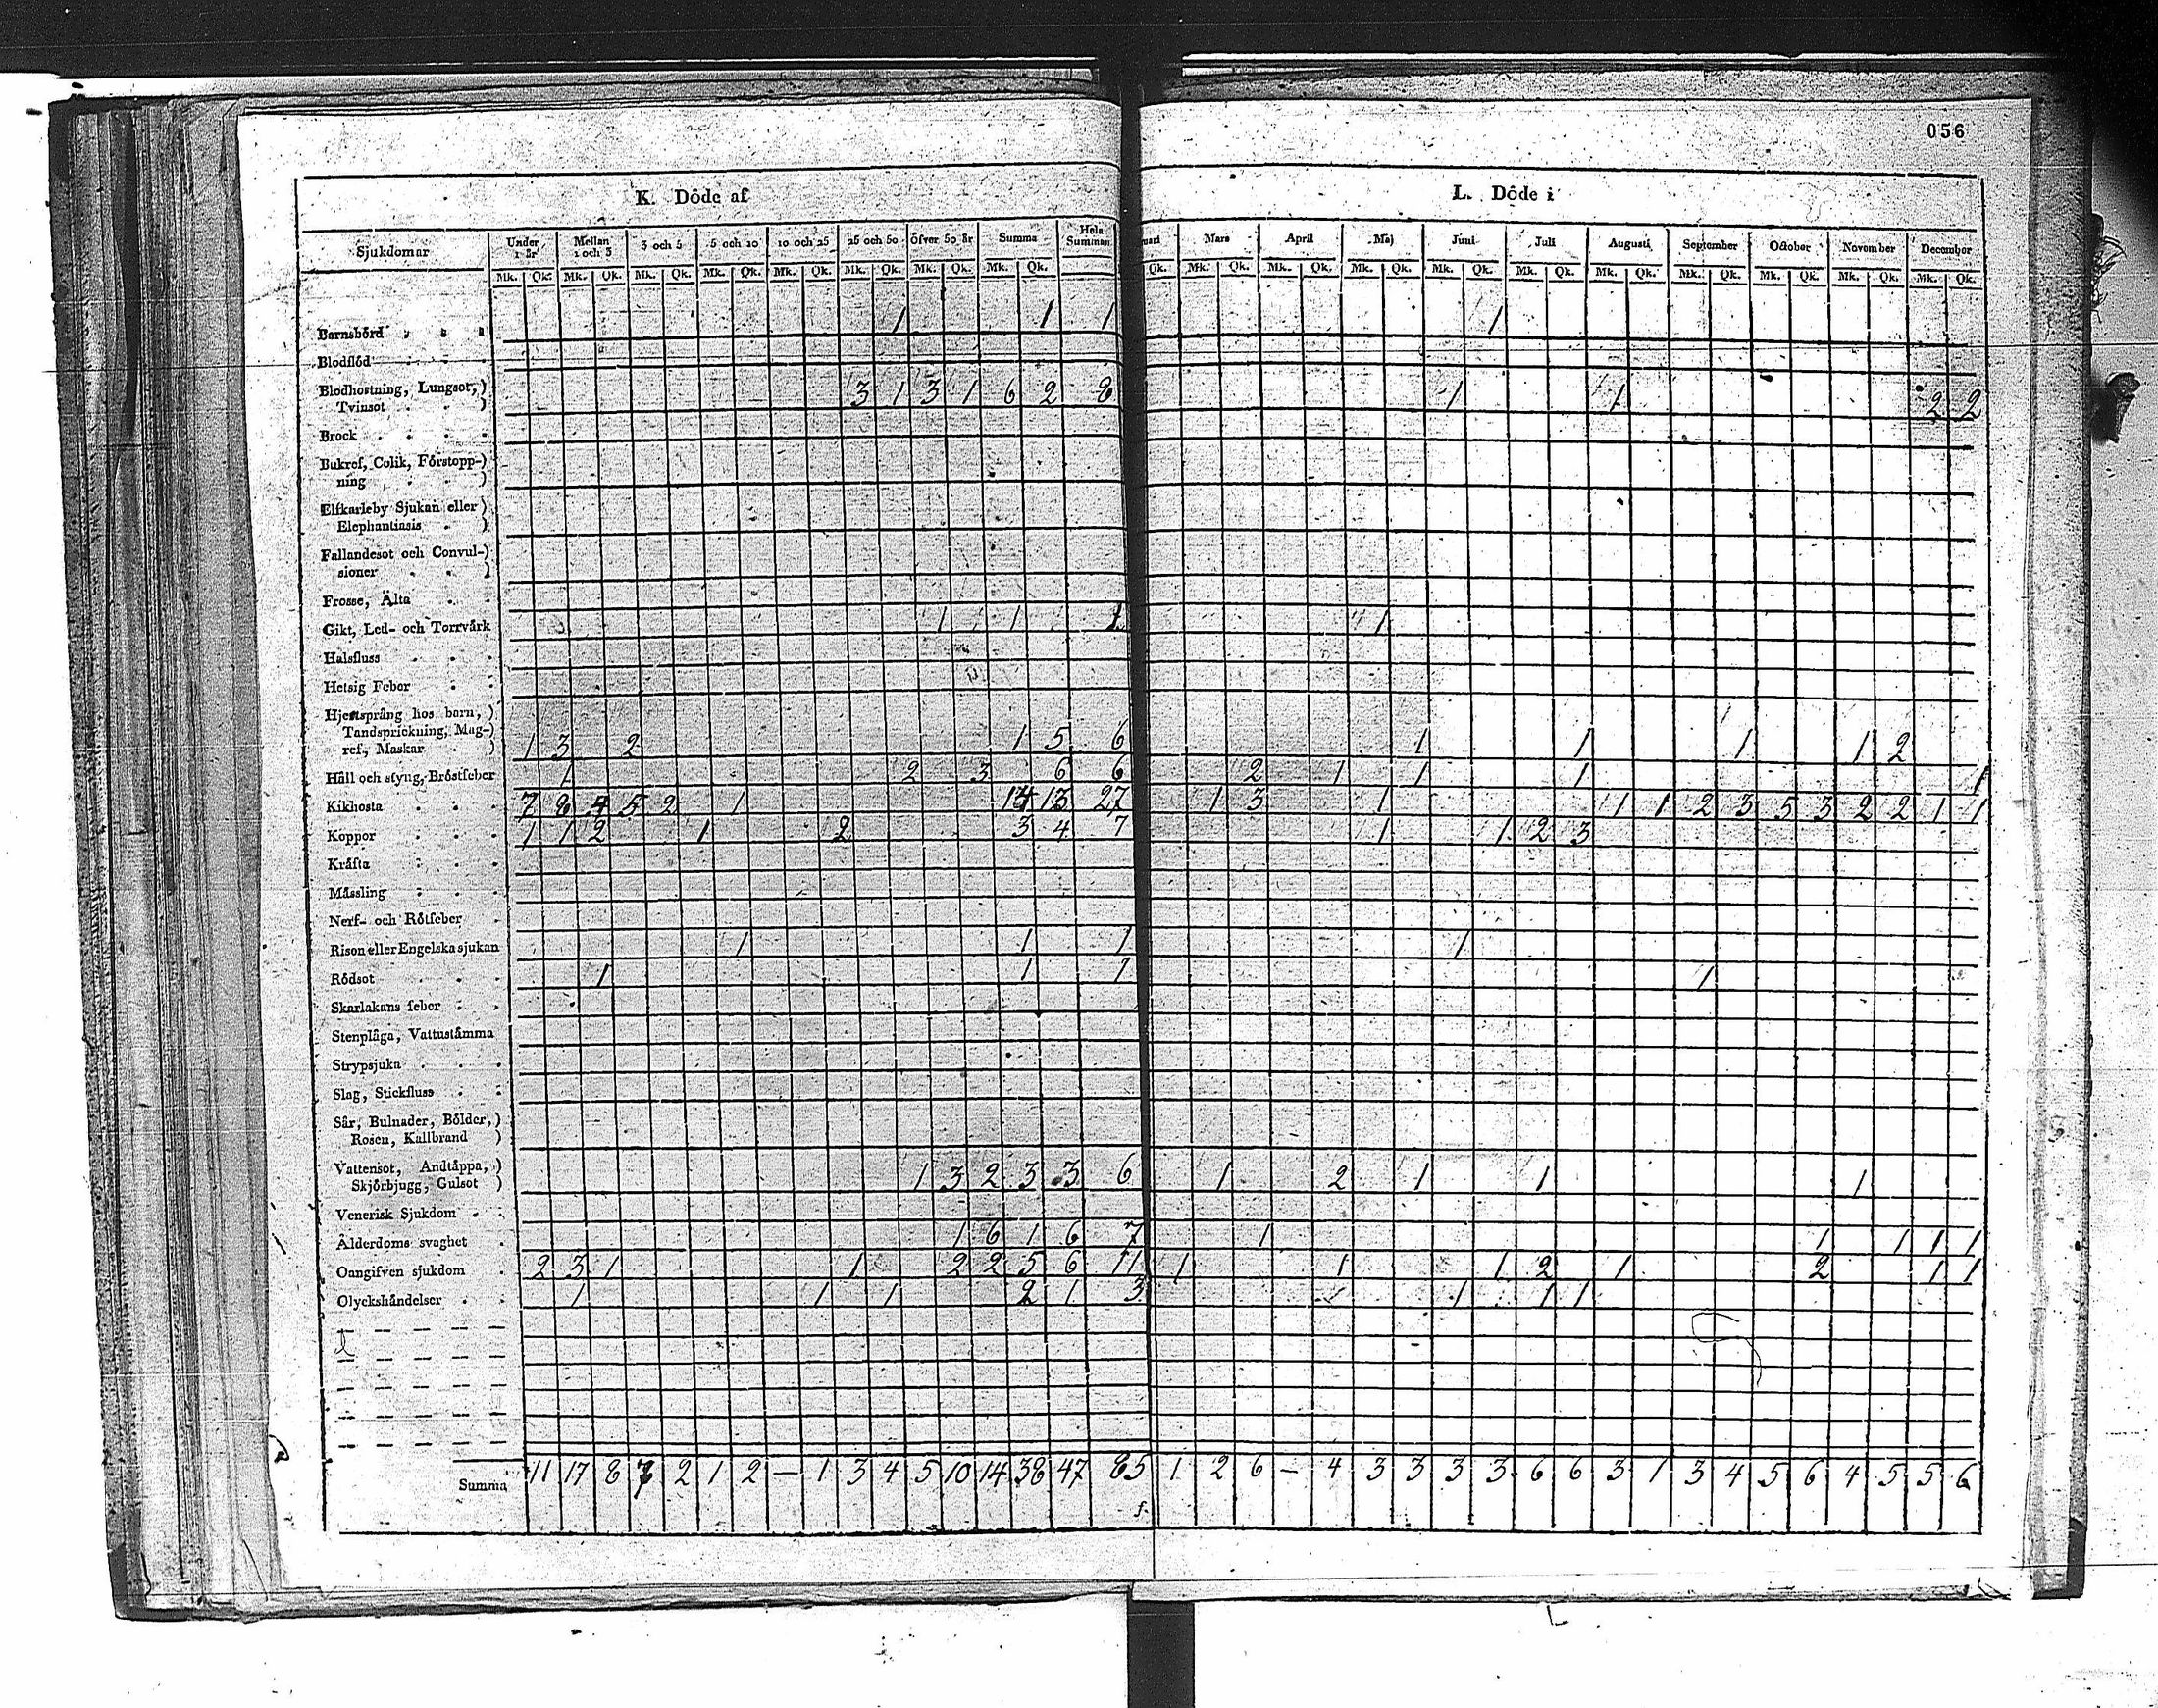 056
K. Döde af
L. Döde i
Sjukdomar Under 1 år Mellan 1 och 3 3 och 5 5 och 10 10 och 25 25 och 50 öfver 50 år Summa Hela Summan uari Mars April Maj Juni Juli Augusti September October November December
Mk. Qk. Mk. Qk. Mk. Qk. Mk. Qk. Mk. Qk. Mk. Qk. Mk. Qk. Mk. Qk. Qk. Mk. Qk. Mk. Qk. Mk. Qk. Mk. Qk. Mk. Qk. Mk. Qk. Mk. Qk. Mk. Qk. Mk. Qk. Mk. Qk.
Barnsbörd 1 1 1 1
Blodflöd
Blodhostning, Lungsot,)
Tvinsot ) 3 1 3 1 6 2 8 1 1 2 2
Brock
Bukref, Colik, Förstopp-)
ning )
Elfkarleby Sjukan eller)
Elephantiasis )
Fallandesot och Convul-)
sioner )
Frosse, Älta
Gikt, Led- och Torrvärk 1 1 1 1
Halsfluss
Hetsig Feber
Hjertsprång hos barn, )
Tandsprickning, Mag-)
ref, Maskar ) 1 3 2 1 5 6 1 1 1 1 2
Håll och styng, Bröstfeber 1 2 3 6 6 2 1 1 1 1
Kikhosta 7 8 4 5 2 1 14 13 27 1 3 1 1 1 2 3 5 3 2 2 1 1
Koppor 1 1 2 1 2 3 4 7 1 1 2 3
Kräfta
Mässling
Nerf- och Rötfeber
Risen eller Engelska sjukan 1 1 1 1
Rödsot 1 1 1 1
Skarlakans feber
Stenplåga, Vattustämma
Strypsjuka
Slag, Stickfluss
Sår, Bulnader, Bölder,)
Rosen, Kallbrand )
Vattensot, Andtäppa, )
Skjörbjugg, Gulsot ) 1 3 2 3 3 6 1 2 1 1 1
Venerisk Sjukdom
Ålderdoms svaghet 1 6 1 6 7 1 1 1 1 1
Oangifven sjukdom 2 3 1 1 2 2 5 6 11 1 1 1 2 1 2 1 1
Olyckshändelser 1 1 1 2 1 3 1 1 1
Summa 11 17 8 7 2 1 2 — 1 3 4 5 10 14 38 47 85 1 2 6 – 4 3 3 3 3 6 6 3 1 3 4 5 6 4 5 5 6
f.